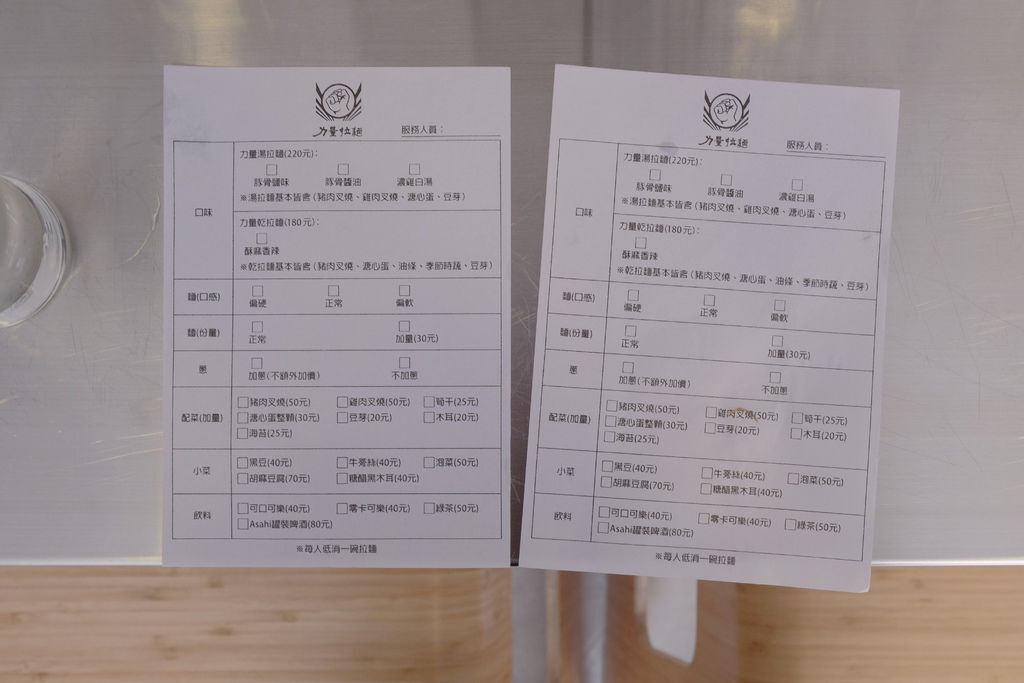 力量拉麵
服務人員：
口味
力量湯拉麵(220元)：
豚骨鹽味 豚骨醬油 濃雞白湯
※湯拉麵基本皆含（豬肉叉燒、雞肉叉燒、溏心蛋、豆芽）
力量乾拉麵(180元)：
酥麻香辣
※乾拉麵基本皆含（豬肉叉燒、溏心蛋、油條、季節時蔬、豆芽）
麵(口感)
偏硬 正常 偏軟
麵(份量)
正常 加量(30元)
蔥
加蔥(不額外加價) 不加蔥
配菜(加量)
豬肉叉燒(50元) 雞肉叉燒(50元) 筍干(25元)
溏心蛋整顆(30元) 豆芽(20元) 木耳(20元)
海苔(25元)
小菜
黑豆(40元) 牛蒡絲(40元) 泡菜(50元)
胡麻豆腐(70元) 糖醋黑木耳(40元)
飲料
可口可樂(40元) 零卡可樂(40元) 綠茶(50元)
Asahi罐裝啤酒(80元)
※每人低消一碗拉麵
力量拉麵
服務人員：
口味
力量湯拉麵(220元)：
豚骨鹽味 豚骨醬油 濃雞白湯
※湯拉麵基本皆含（豬肉叉燒、雞肉叉燒、溏心蛋、豆芽）
力量乾拉麵(180元)：
酥麻香辣
※乾拉麵基本皆含（豬肉叉燒、溏心蛋、油條、季節時蔬、豆芽）
麵(口感)
偏硬 正常 偏軟
麵(份量)
正常 加量(30元)
蔥
加蔥(不額外加價) 不加蔥
配菜(加量)
豬肉叉燒(50元) 雞肉叉燒(50元) 筍干(25元)
溏心蛋整顆(30元) 豆芽(20元) 木耳(20元)
海苔(25元)
小菜
黑豆(40元) 牛蒡絲(40元) 泡菜(50元)
胡麻豆腐(70元) 糖醋黑木耳(40元)
飲料
可口可樂(40元) 零卡可樂(40元) 綠茶(50元)
Asahi罐裝啤酒(80元)
※每人低消一碗拉麵